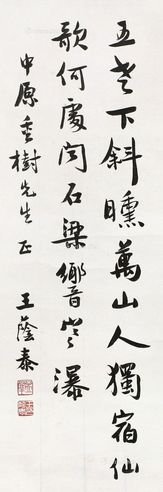 五老下斜曛萬山人獨宿仙
歌何處聞石梁響瀑
中原樹先生正
王蔭泰